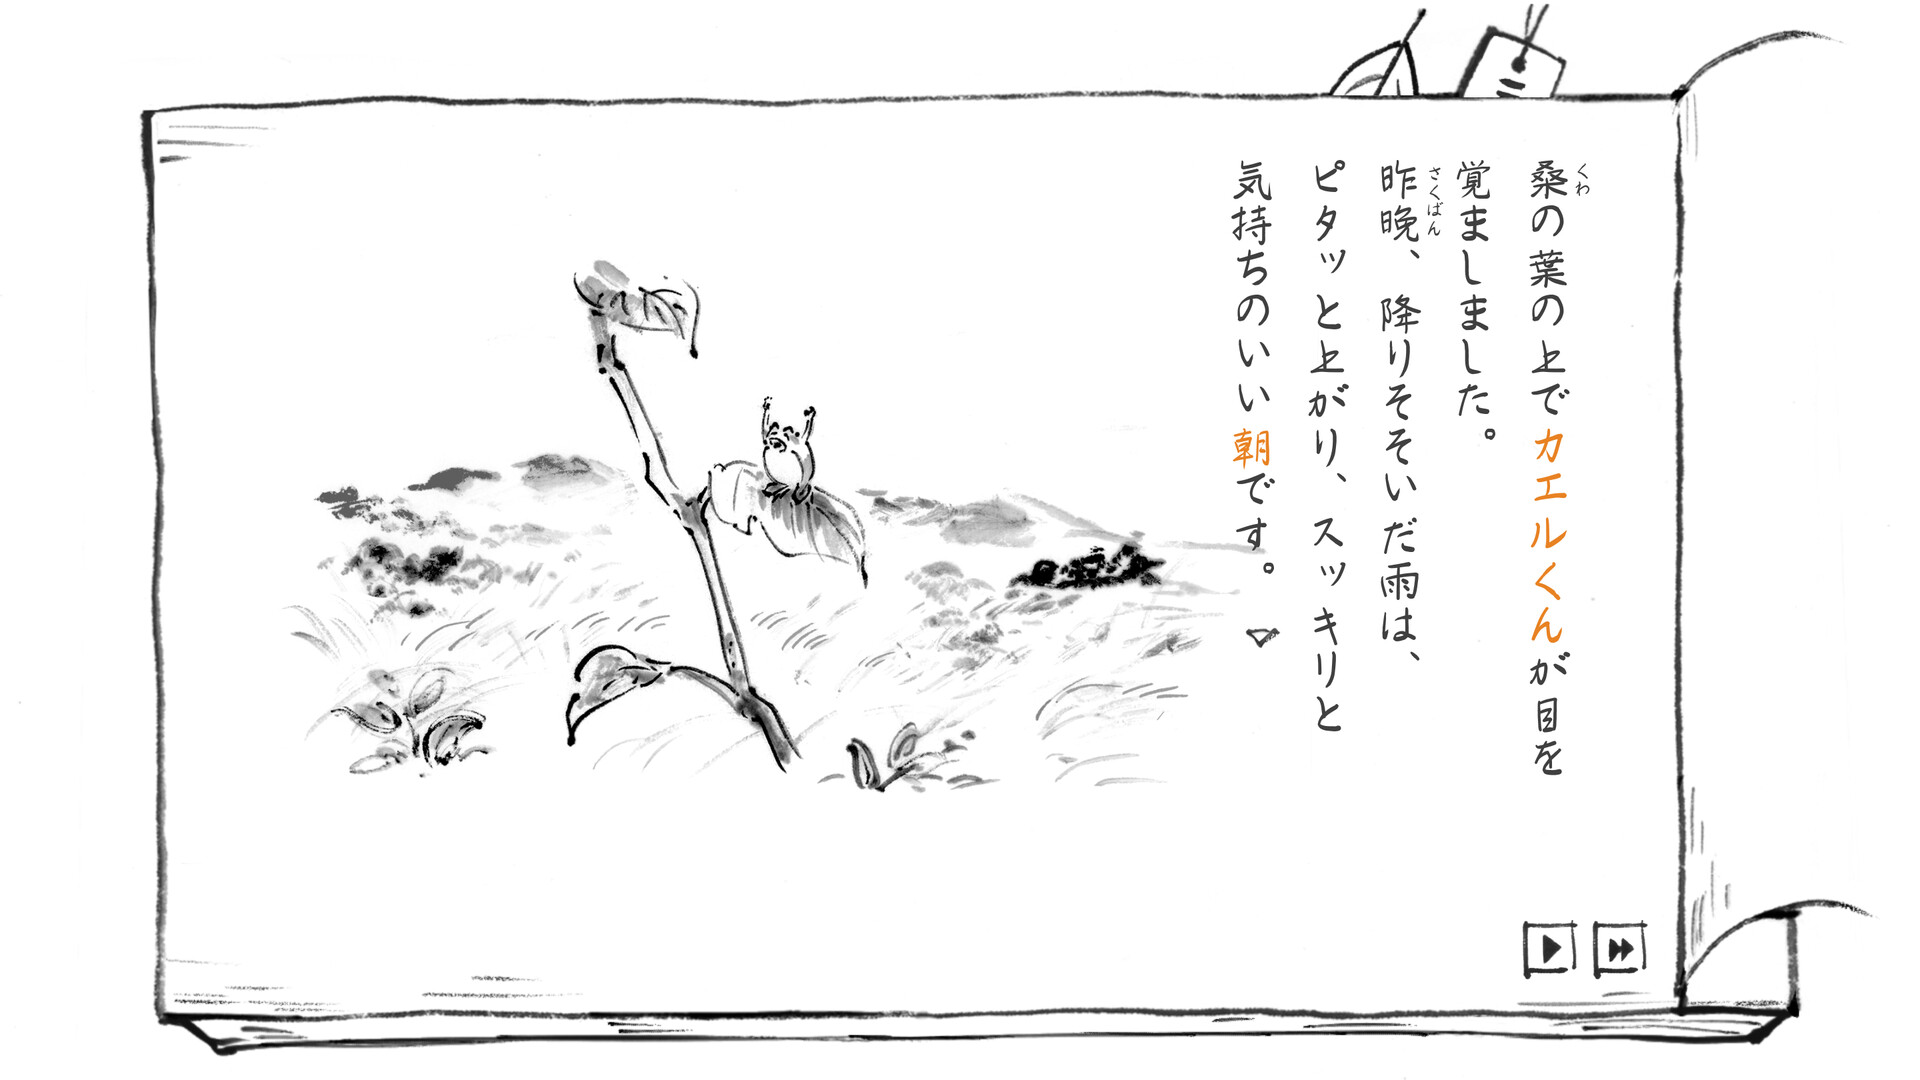 桑の葉の上でカエルくんが目を
覚ましました。
昨晩、降りそそいだ雨は、
ピタッと上がり、スッキリと
気持ちのいい朝です。
くわ
さくばん